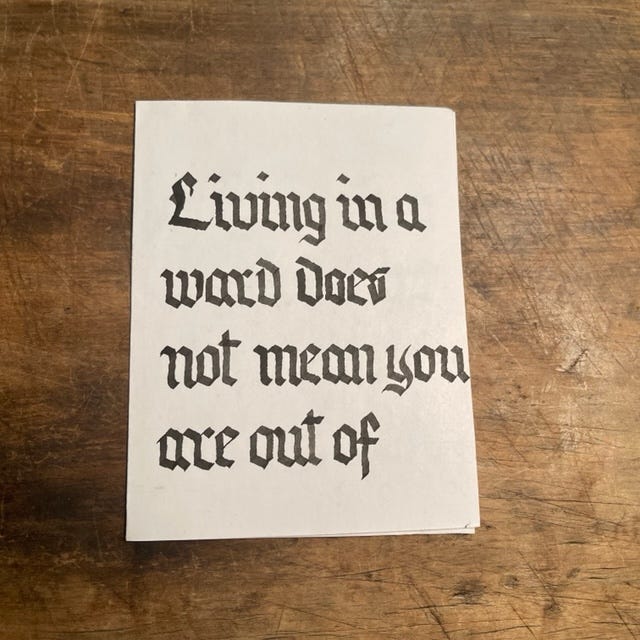 Living in a
ward does
not mean you
are out of